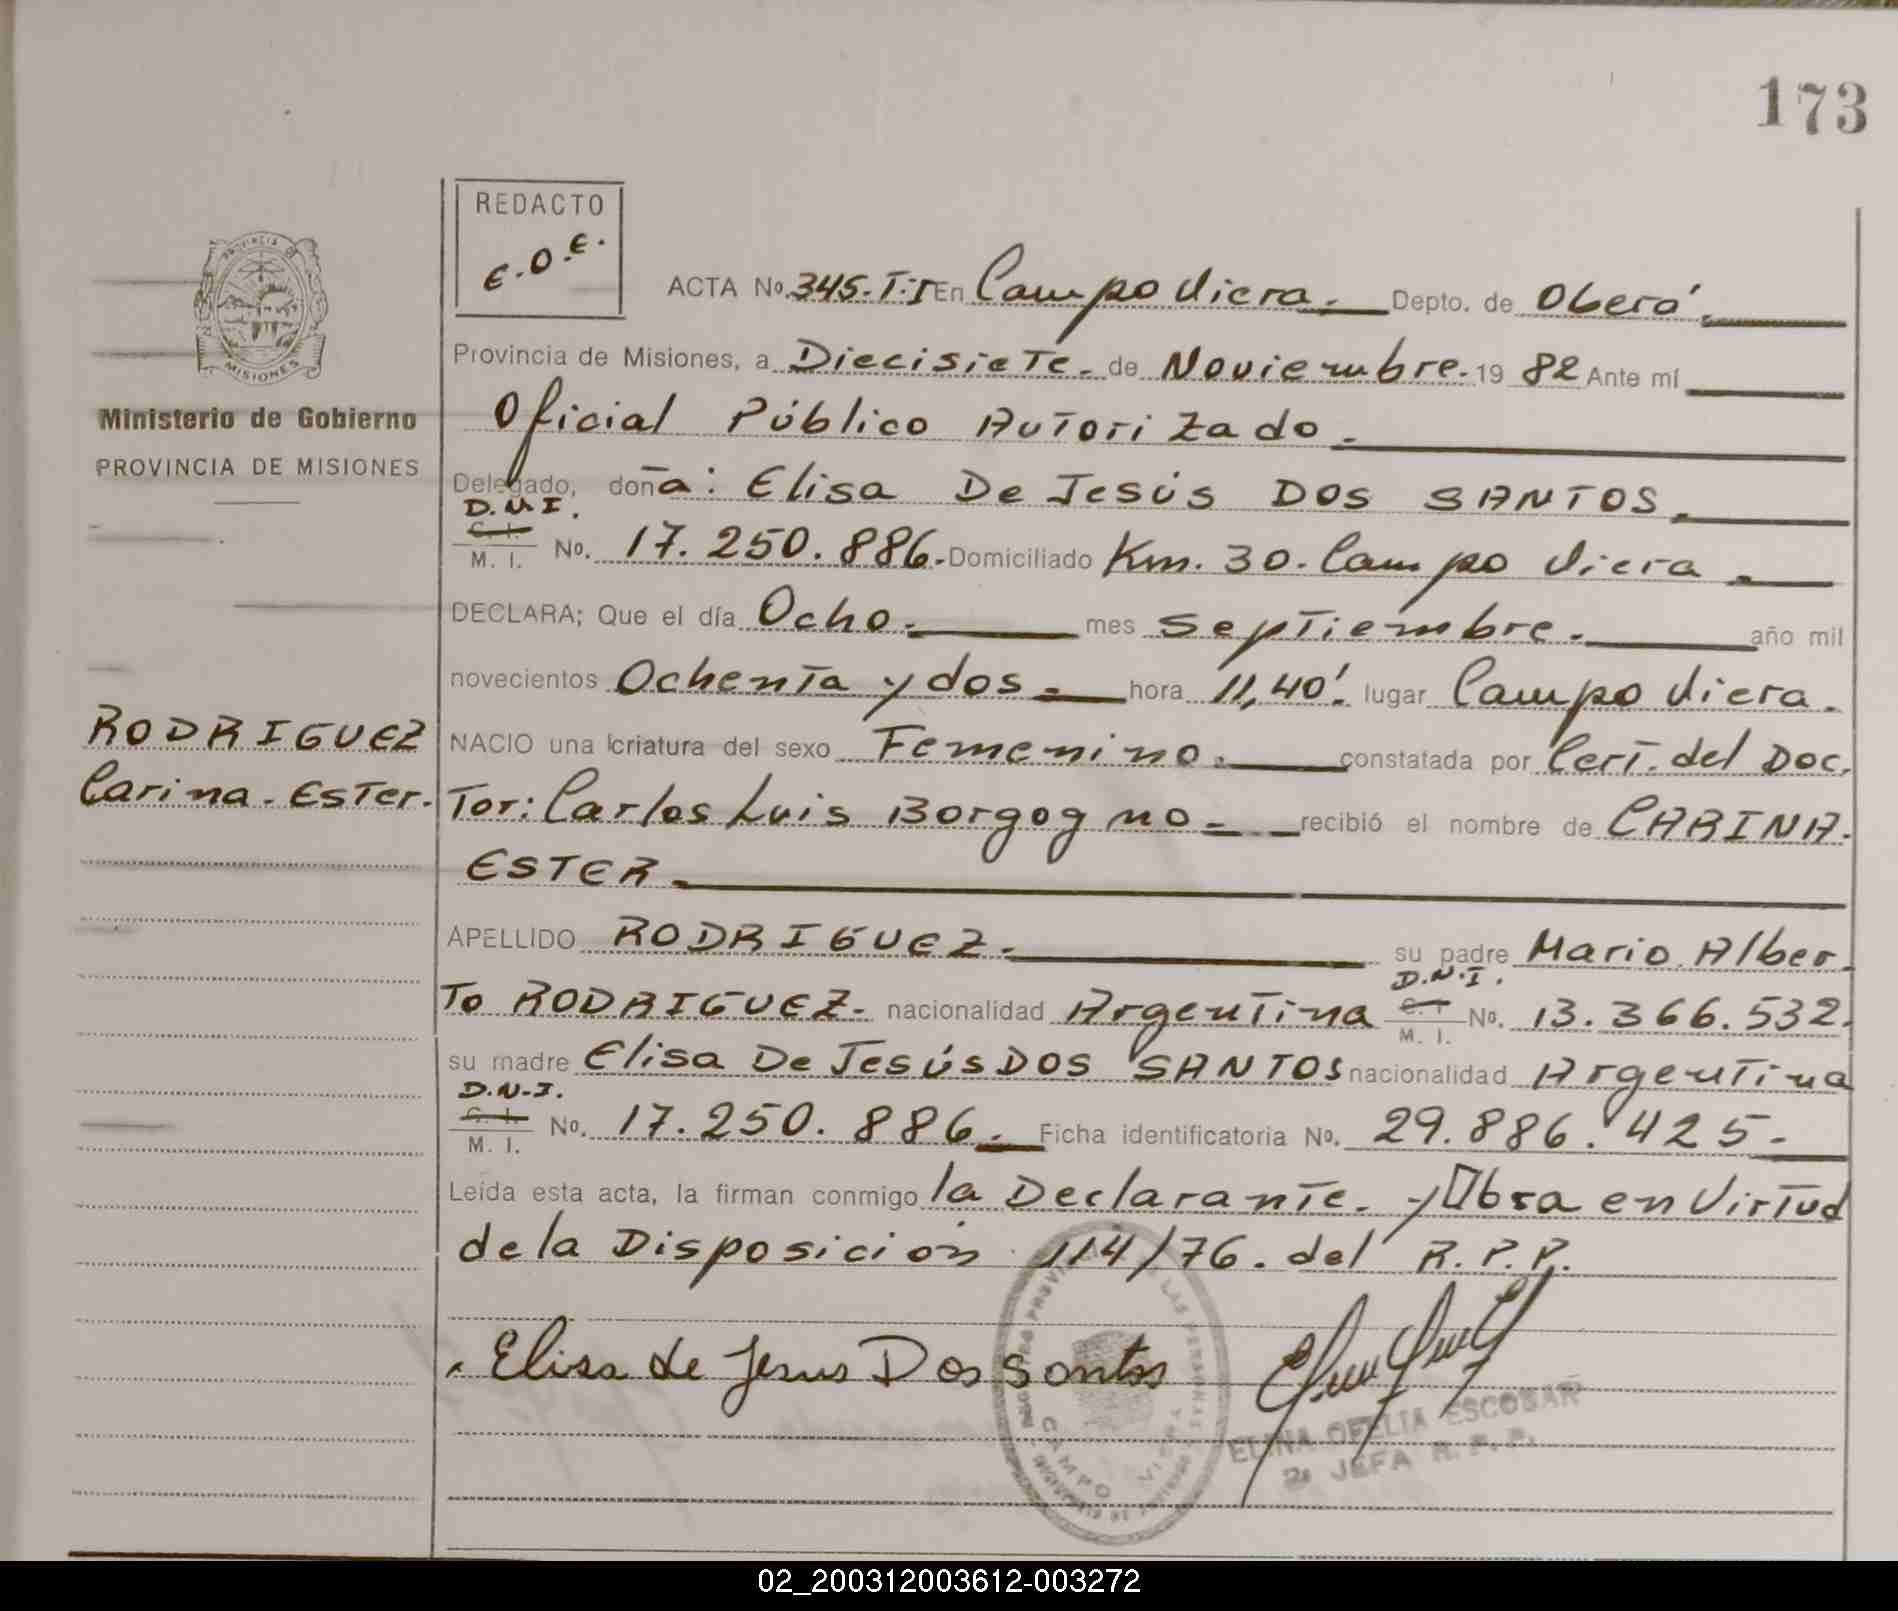 173
REDACTO
E.O.E.
PROVINCIA DE
MISIONES
Ministerio de Gobierno
PROVINCIA DE MISIONES
RODRIGUEZ
Carina. Ester.
ACTA No. 345.T:I En Campo Viera. Depto. de Oberá.
Provincia de Misiones, a Diecisiete. de Noviembre. 19 82 Ante mí
Oficial Público Autorizado.
Delegado, doña: Elisa De Jesús DOS SANTOS.
D.N.I.
C. I.
M. I. No. 17.250.886. Domiciliado Km. 30. Campo Viera.
DECLARA; Que el día Ocho. mes Septiembre. año mil
novecientos Ochenta y dos. hora 11,40'. lugar Campo Viera.
NACIO una criatura del sexo Femenino. constatada por Cert. del Doc.
Tor: Carlos Luis Borgogno recibió el nombre de CARINA.
ESTER.
APELLIDO RODRIGUEZ. su padre Mario Alber
D.N.I.
To RODRIGUEZ. nacionalidad Argentina C. I M. I. No. 13.366.532.
su madre Elisa De Jesús DOS SANTOS nacionalidad Argentina
D.N.I.
C. I.
M. I. No. 17.250.886. Ficha identificatoria No. 29.886.425.
Leída esta acta, la firman conmigo la Declarante. y Obra en Virtud
de la Disposición 114/76. del R.P.P.
Elisa de Jesus Dos Santos
ELINA OFELIA ESCOBAR
2ª JEFA R. P. P.
CAMPO VIERA
02_200312003612-003272